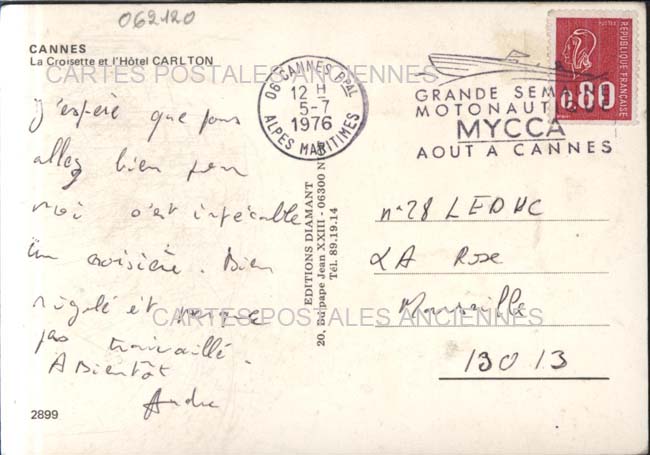 062120
CANNES
La Croisette et l'Hôtel CARLTON
CARTES POSTALES ANCIENNES
06 CANNES PPAL
12 H
5-7
1976
ALPES MARITIMES
GRANDE SEMA
MOTONAUT
MYCCA
AOUT A CANNES
POSTES
REPUBLIQUE FRANÇAISE
0,80
J'espère que vous
allez bien pour
moi c'est impécable
Un croisière. Bien
rigolé et
pas travaillé.
A Bientôt
Andre
EDITIONS DIAMANT
20, Bd pape Jean XXIII - 06300 N
Tél. 89.19.14
n°28 LEDUC
LA Rose
Marseille
13013
CARTES POSTALES ANCIENNES
2899